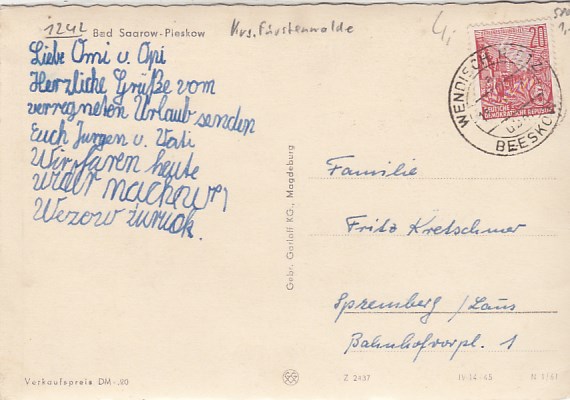 1242
Bad Saarow-Pieskow
Krs. Fürstenwalde
Liebe Omi u. Opi
Herzliche Grüße vom
verregneten Urlaub senden
Euch Jürgen u. Vati
Wir faren heute
wider nach
Wezow zurück.
20
DEUTSCHE
DEMOKRATISCHE REPUBLIK
WENDISCH
BEESKOW
Gebr. Garloff KG., Magdeburg
Familie
Fritz Kretschmer
Spremberg /Laus
Bahnhofvorpl. 1
Verkaufspreis DM -,20
Z 2437
IV-14-45